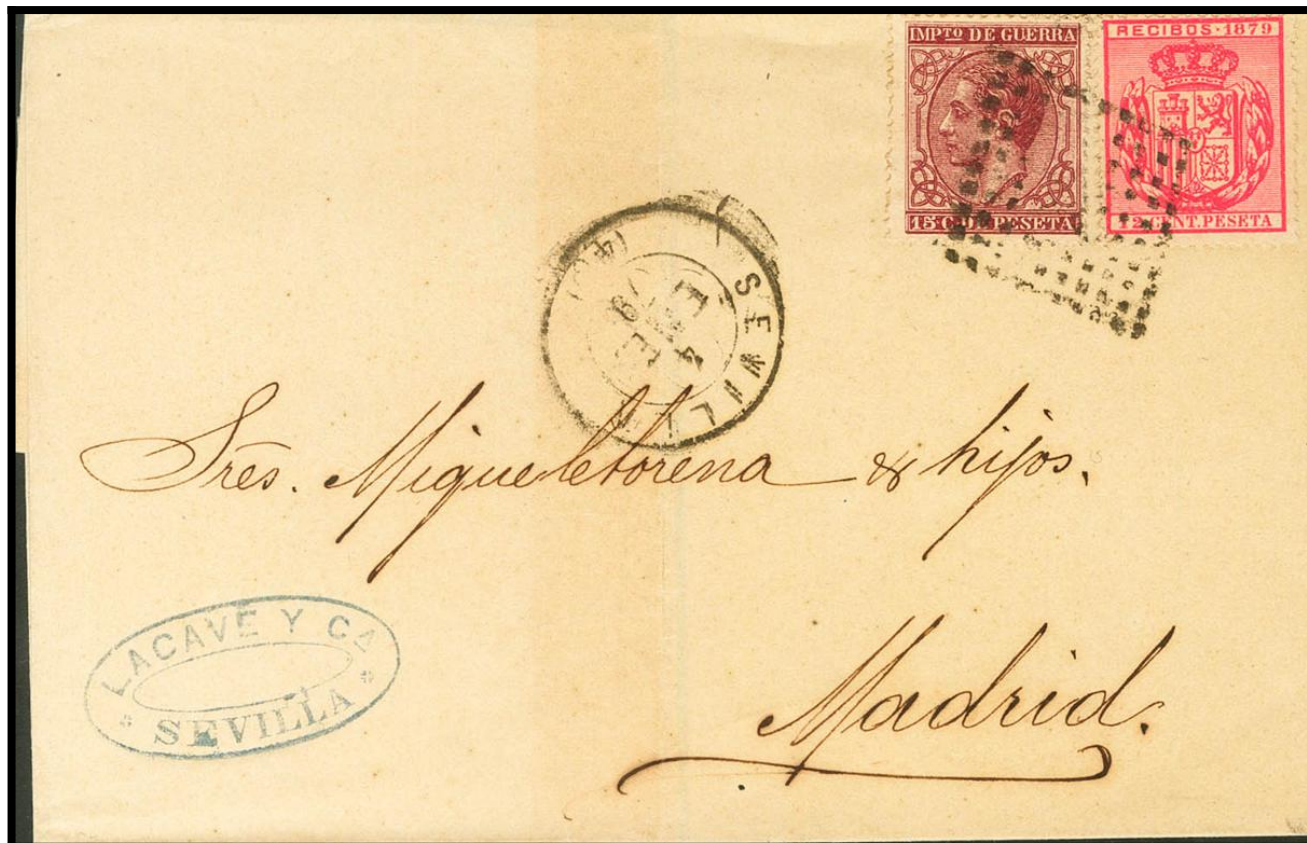 IMPTO DE GUERRA
15 C. DE PESETA
RECIBOS · 1879
12 CENT. PESETA
SEVILLA
4
ENE
79
Sres. Migueletorena & hijos.
Madrid.
LACAVE Y CA
SEVILLA